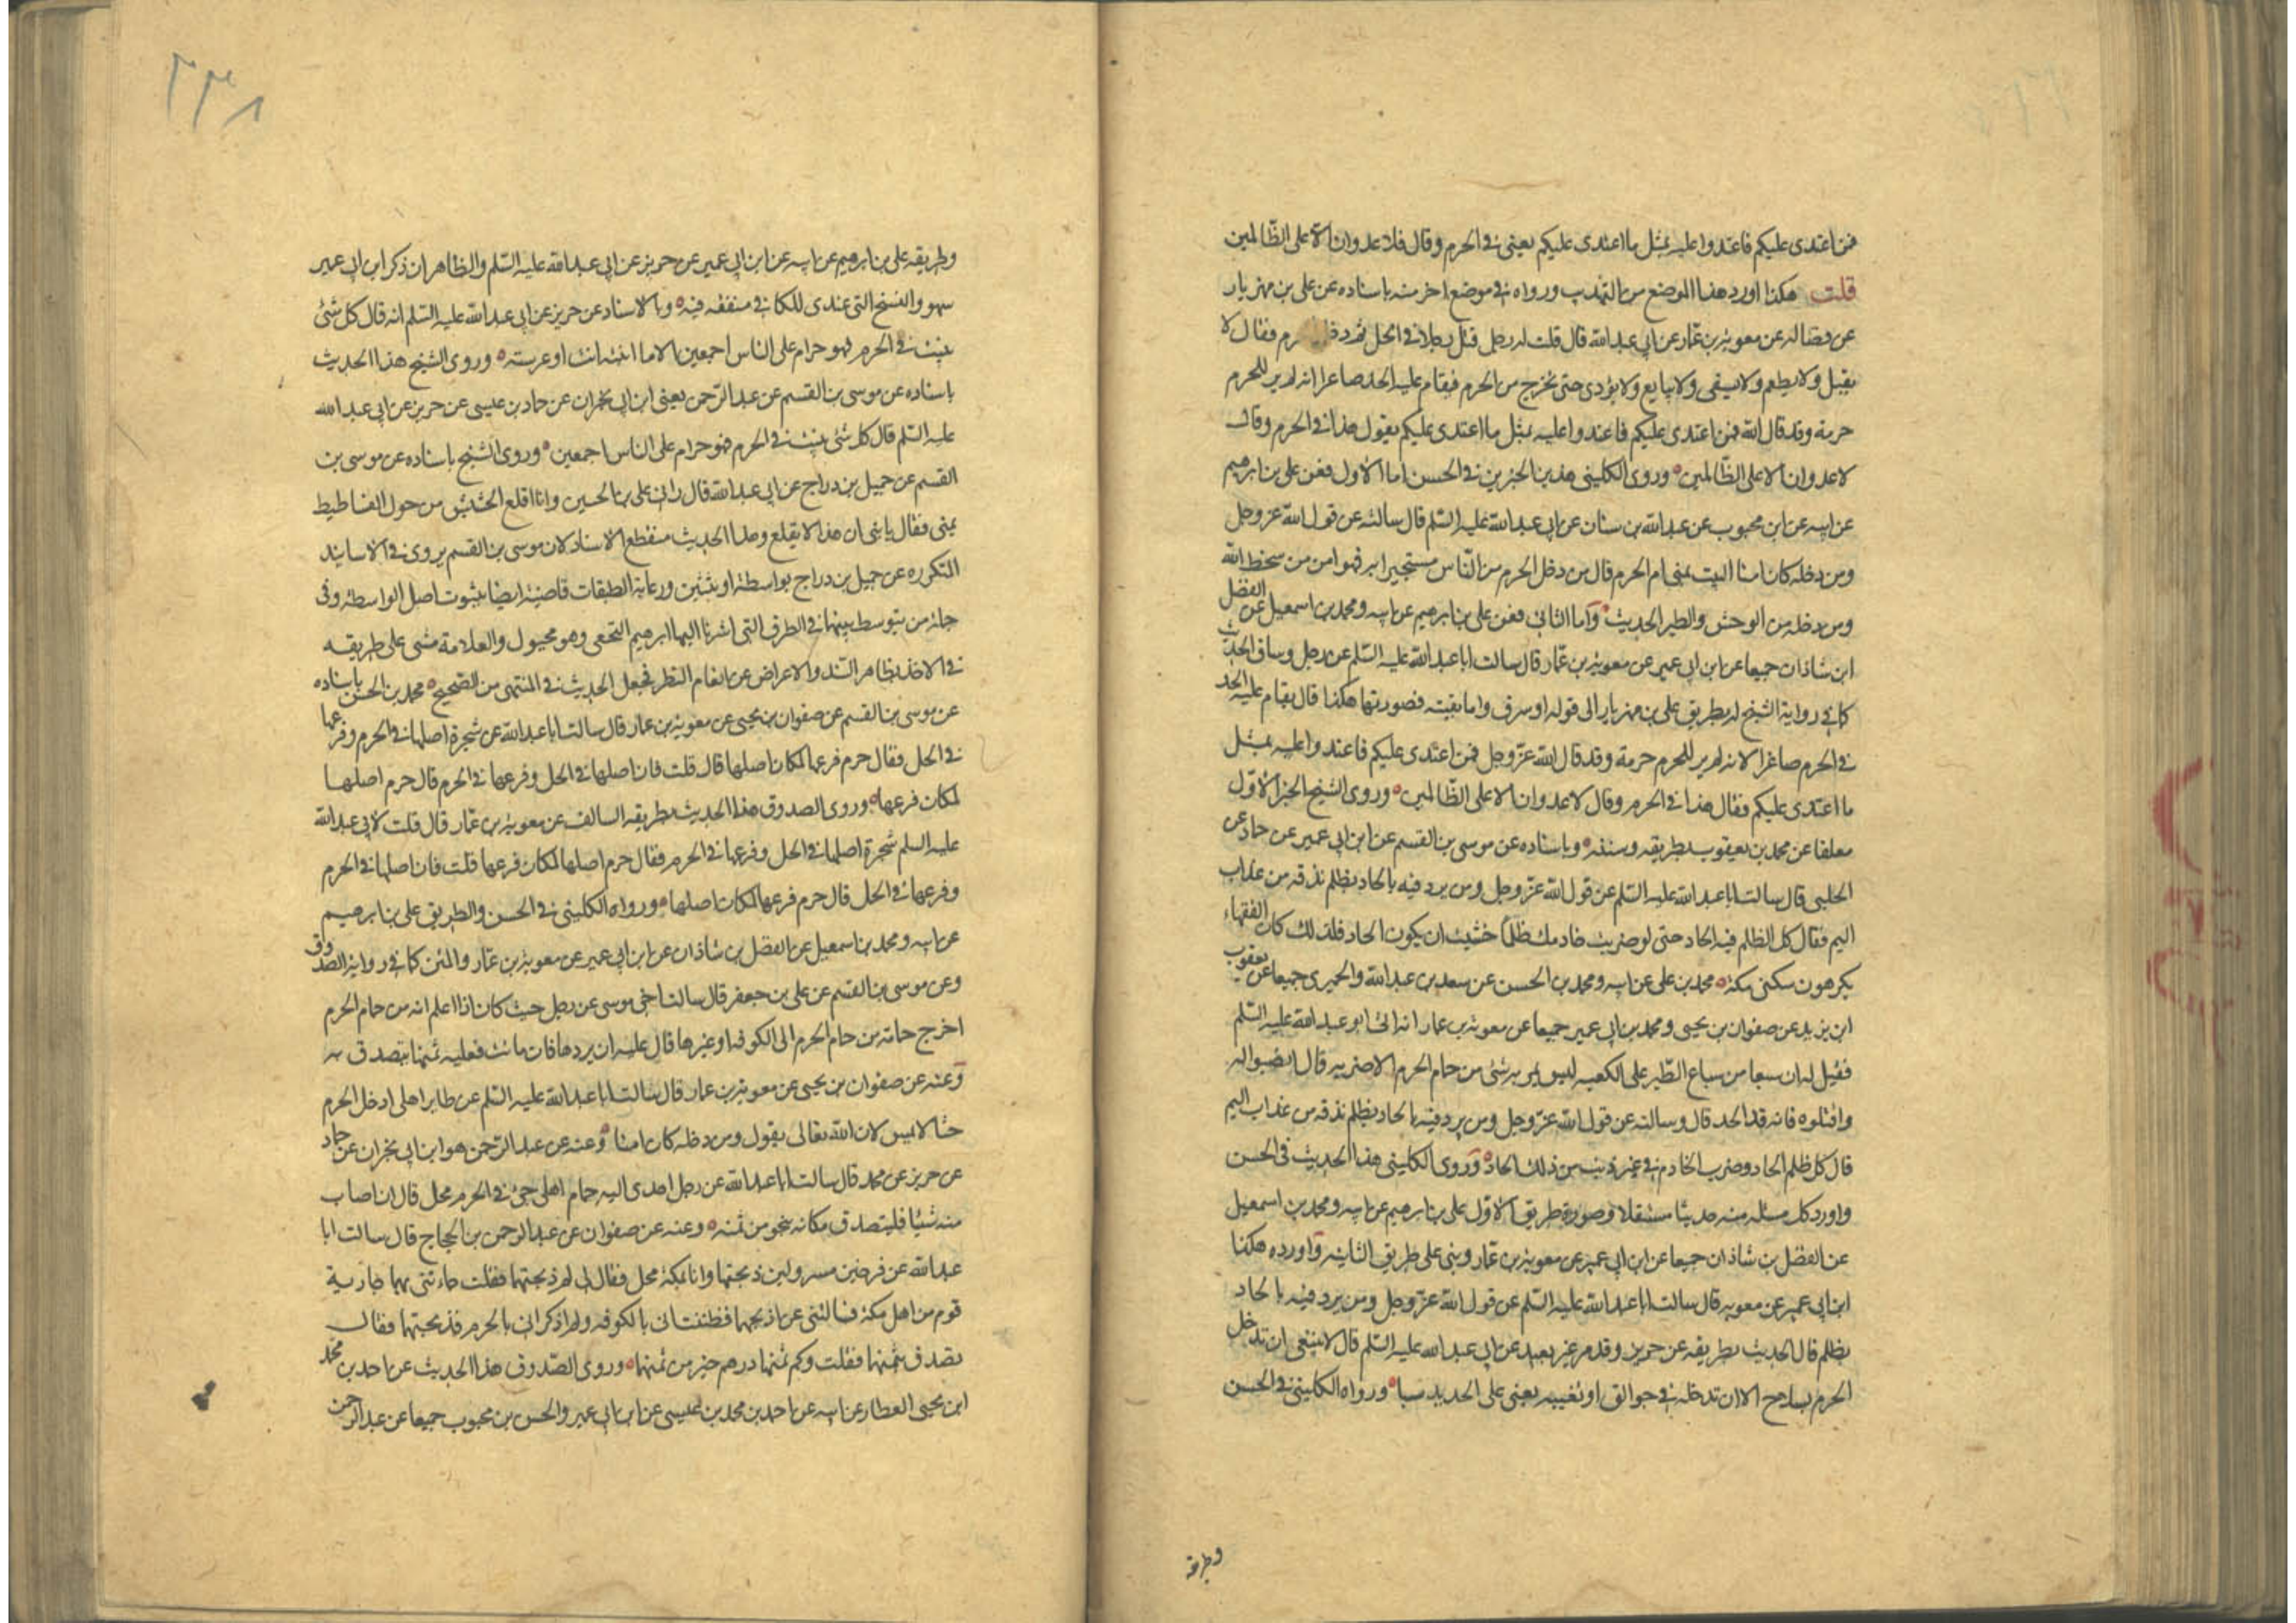 فمن اعتدى عليكم فاعتدوا عليه بمثل ما اعتدى عليكم يعنى فى الحرم وقال فلا عدوان الا على الظالمين
قلت هكذا اورد هذا الموضع من التهذيب ورواه فى موضع اخر منه باسناده عن على بن مهزيار
عن فضاله عن معوية بن عمار عن ابى عبد الله قال قلت له رجل قتل رجلا فى الحل ثم دخل الحرم فقال لا
يقتل ولا يطعم ولا يسقى ولا يبايع ولا يؤذى حتى يخرج من الحرم فيقام عليه الحد صاغرا انه لم ير للحرم
حرمة وقد قال الله فمن اعتدى عليكم فاعتدوا عليه بمثل ما اعتدى عليكم يقول هذا فى الحرم وقال
لا عدوان الا على الظالمين وروى الكلينى هذين الخبرين فى الحسن اما الاول فعن على بن ابرهيم
عن ابيه عن ابن محبوب عن عبد الله بن سنان عن ابى عبد الله عليه السلم قال سألته عن قول الله عز وجل
ومن دخله كان امنا البيت يمنى ام الحرم قال من دخل الحرم من الناس مستجيرا به فهو امن من سخط الله
ومن دخله من الوحش والطير الحديث واما الثانى فعن على بن ابرهيم عن ابيه ومحمد بن اسمعيل عن الفضل
ابن شاذان جميعا عن ابن ابى عمير عن معوية بن عمار قال سالت ابا عبد الله عليه السلم عن رجل وساق الحديث
كما فى رواية الشيخ له بطريق على بن مهزيار الى قوله او سرق واما بقيته فصورتها هكذا قال يقام عليه الحد
فى الحرم صاغرا لانه لم ير للحرم حرمة وقد قال الله عز وجل فمن اعتدى عليكم فاعتدوا عليه بمثل
ما اعتدى عليكم فقال هذا فى الحرم وقال لا عدوان الا على الظالمين وروى الشيخ الخبر الاول
معلقا عن محمد بن يعقوب بطريقه ومتنه وباسناده عن موسى بن القسم عن ابن ابى عمير عن حماد عن
الحلبى قال سالت ابا عبد الله عليه السلم عن قول الله عز وجل ومن يرد فيه بالحاد بظلم نذقه من عذاب
اليم فقال كل الظلم فيه الحاد حتى لو ضربت خادمك ظلما خشيت ان يكون الحاد فلذلك كان الفقهاء
يكرهون سكنى مكة محمد بن على عن ابيه ومحمد بن الحسن عن سعد بن عبد الله والحميرى جميعا عن يعقوب
ابن يزيد عن صفوان بن يحيى ومحمد بن ابى عمير جميعا عن معوية بن عمار انه اتى ابو عبد الله عليه السلم
فقيل له ان سبعا من سباع الطير على الكعبه ليس يمر به شئ من حمام الحرم الا ضربه قال انصبوا له
واقتلوه فانه قد الحد قال وسالته عن قول الله عز وجل ومن يرد فيه بالحاد بظلم نذقه من عذاب اليم
قال كل ظلم الحاد وضرب الخادم فى غير ذنب من ذلك الحاد وروى الكلينى هذا الحديث فى الحسن
واورد كل مسئله منه حديثا مستقلا وصورة طريق الاول على بن ابرهيم عن ابيه ومحمد بن اسمعيل
عن الفضل بن شاذان جميعا عن ابن ابى عمير عن معوية بن عمار وبنى على طريق الثانيه واورده هكذا
ابن ابى عمير عن معويه قال سالت ابا عبد الله عليه السلم عن قول الله عز وجل ومن يرد فيه بالحاد
بظلم قال الحديث بطريقه عن حريز وقد مر غير بعيد عن ابى عبد الله عليه السلم قال لا ينبغى ان تدخل
الحرم بسلاح الا ان تدخله فى جوالق او تغيبه يعنى على الحديد شيا ورواه الكلينى فى الحسن
وطريقه
٢٣٨
وطريقه على بن ابرهيم عن ابيه عن ابن ابى عمير عن حريز عن ابى عبد الله عليه السلم والظاهر ان ذكر ابن ابى عمير
سهو والنسخ التى عندى للكافى متفقه فيه وبالاسناد عن حريز عن ابى عبد الله عليه السلم انه قال كل شئ
ينبت فى الحرم فهو حرام على الناس اجمعين الا ما انبته انت او غرسته وروى الشيخ هذا الحديث
باسناده عن موسى بن القسم عن عبد الرحمن يعنى ابن ابى نجران عن حماد بن عيسى عن حريز عن ابى عبد الله
عليه السلم قال كل شئ ينبت فى الحرم فهو حرام على الناس اجمعين وروى الشيخ باسناده عن موسى بن
القسم عن جميل بن دراج عن ابى عبد الله قال رانى على بن الحسين وانا اقلع الحشيش من حول الفساطيط
بمنى فقال يا بنى ان هذا لا يقلع وهذا الحديث منقطع الاسناد لان موسى بن القسم يروى فى الاسانيد
المتكرره عن جميل بن دراج بواسطة او ثنتين ورعاية الطبقات قاضية ايضا بثبوت اصل الواسطة وفى
جملة من يتوسط بينهما فى الطرق التى اشرنا اليها ابرهيم النخعى وهو مجهول والعلامة مشى على طريقـه
فى الاخذ بظاهر السند والاعراض عن انعام النظر فجعل الحديث فى المنتهى من الصحيح محمد بن الحسن باسناده
عن موسى بن القسم عن صفوان بن يحيى عن معوية بن عمار قال سالت ابا عبد الله عن شجرة اصلها فى الحرم وفرعها
فى الحل فقال حرم فرعها لمكان اصلها قال قلت فان اصلها فى الحل وفرعها فى الحرم قال حرم اصلها
لمكان فرعها وروى الصدوق هذا الحديث بطريقه السالف عن معوية بن عمار قال قلت لابى عبد الله
عليه السلم شجرة اصلها فى الحل وفرعها فى الحرم فقال حرم اصلها لمكان فرعها قلت فان اصلها فى الحرم
وفرعها فى الحل قال حرم فرعها لمكان اصلها ورواه الكلينى فى الحسن والطريق على بن ابرهيم
عن ابيه ومحمد بن اسمعيل عن الفضل بن شاذان عن ابن ابى عمير عن معوية بن عمار والمتن كما فى رواية الصدوق
وعن موسى بن القسم عن على بن جعفر قال سالت اخى موسى عن رجل حيث كان اذا اعلم انه من حمام الحرم
اخرج حمامة من حمام الحرم الى الكوفه او غيرها قال عليه ان يردها فان ماتت فعليه ثمنها يتصدق به
وعنه عن صفوان بن يحيى عن معوية بن عمار قال سالت ابا عبد الله عليه السلم عن طاير اهلى ادخل الحرم
حيا لا يمس لان الله تعالى يقول ومن دخله كان امنا وعنه عن عبد الرحمن هو ابن ابى نجران عن حماد
عن حريز عن محمد قال سالت ابا عبد الله عن رجل اهدى اليه حمام اهلى جئ فى الحرم محل قال ان اصاب
منه شيئا فليتصدق مكانه بنحو من ثمنه وعنه عن صفوان عن عبد الرحمن بن الحجاج قال سالت ابا
عبد الله عن فرخين مسرولين ذبحتهما وانا بمكة محل فقال لى لم ذبحتهما فقلت جاءتنى بهما جارية
قوم من اهل مكة فسالتنى عن اذبحهما فظننت انى بالكوفه ولم اذكر انى بالحرم فذبحتهما فقال
تصدق بثمنهما فقلت وكم ثمنها درهم خير من ثمنها وروى الصدوق هذا الحديث عن احمد بن محمد
ابن يحيى العطار عن ابيه عن احمد بن محمد بن عيسى عن ابن ابى عمير والحسن بن محبوب جميعا عن عبد الرحمن